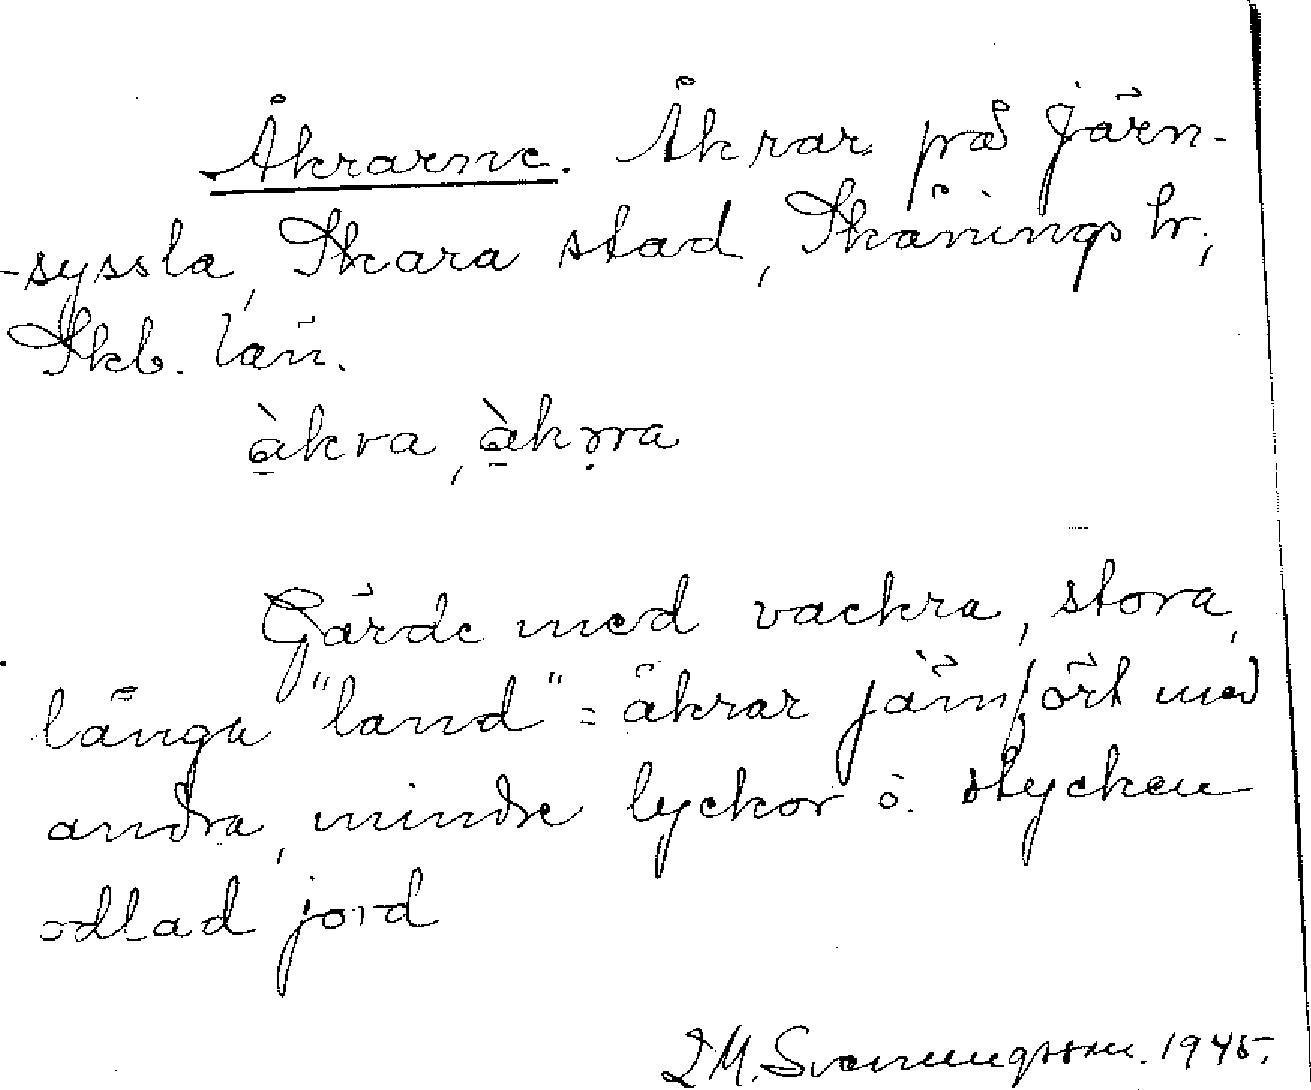 Åkrarne. Åkrar på Järn-
-syssla, Skara stad, Skånings hr,
Skb. län.
àkra, àkr̥ra
Gärde med vackra, stora,
långa "land" = åkrar jämfört med
andra, mindre lyckor o. stycken
odlad jord
M. Svenungsson. 1945.